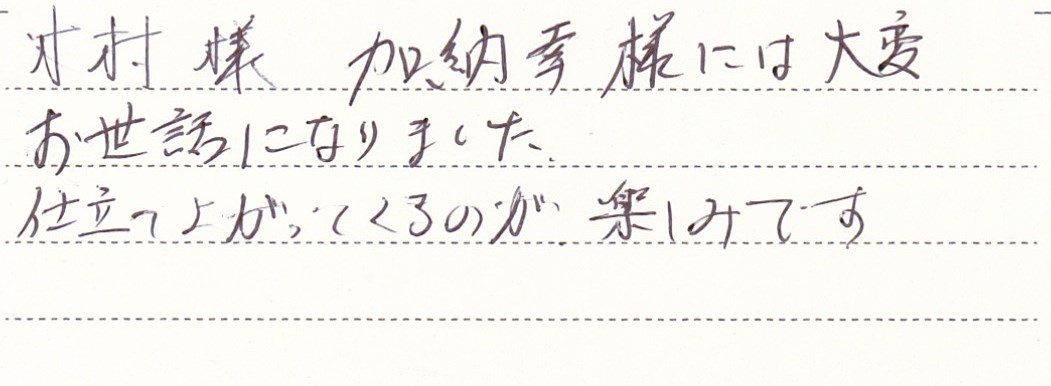 村様 加納幸様には大変
お世話になりました、
仕立て上がってくるのが、楽しみです